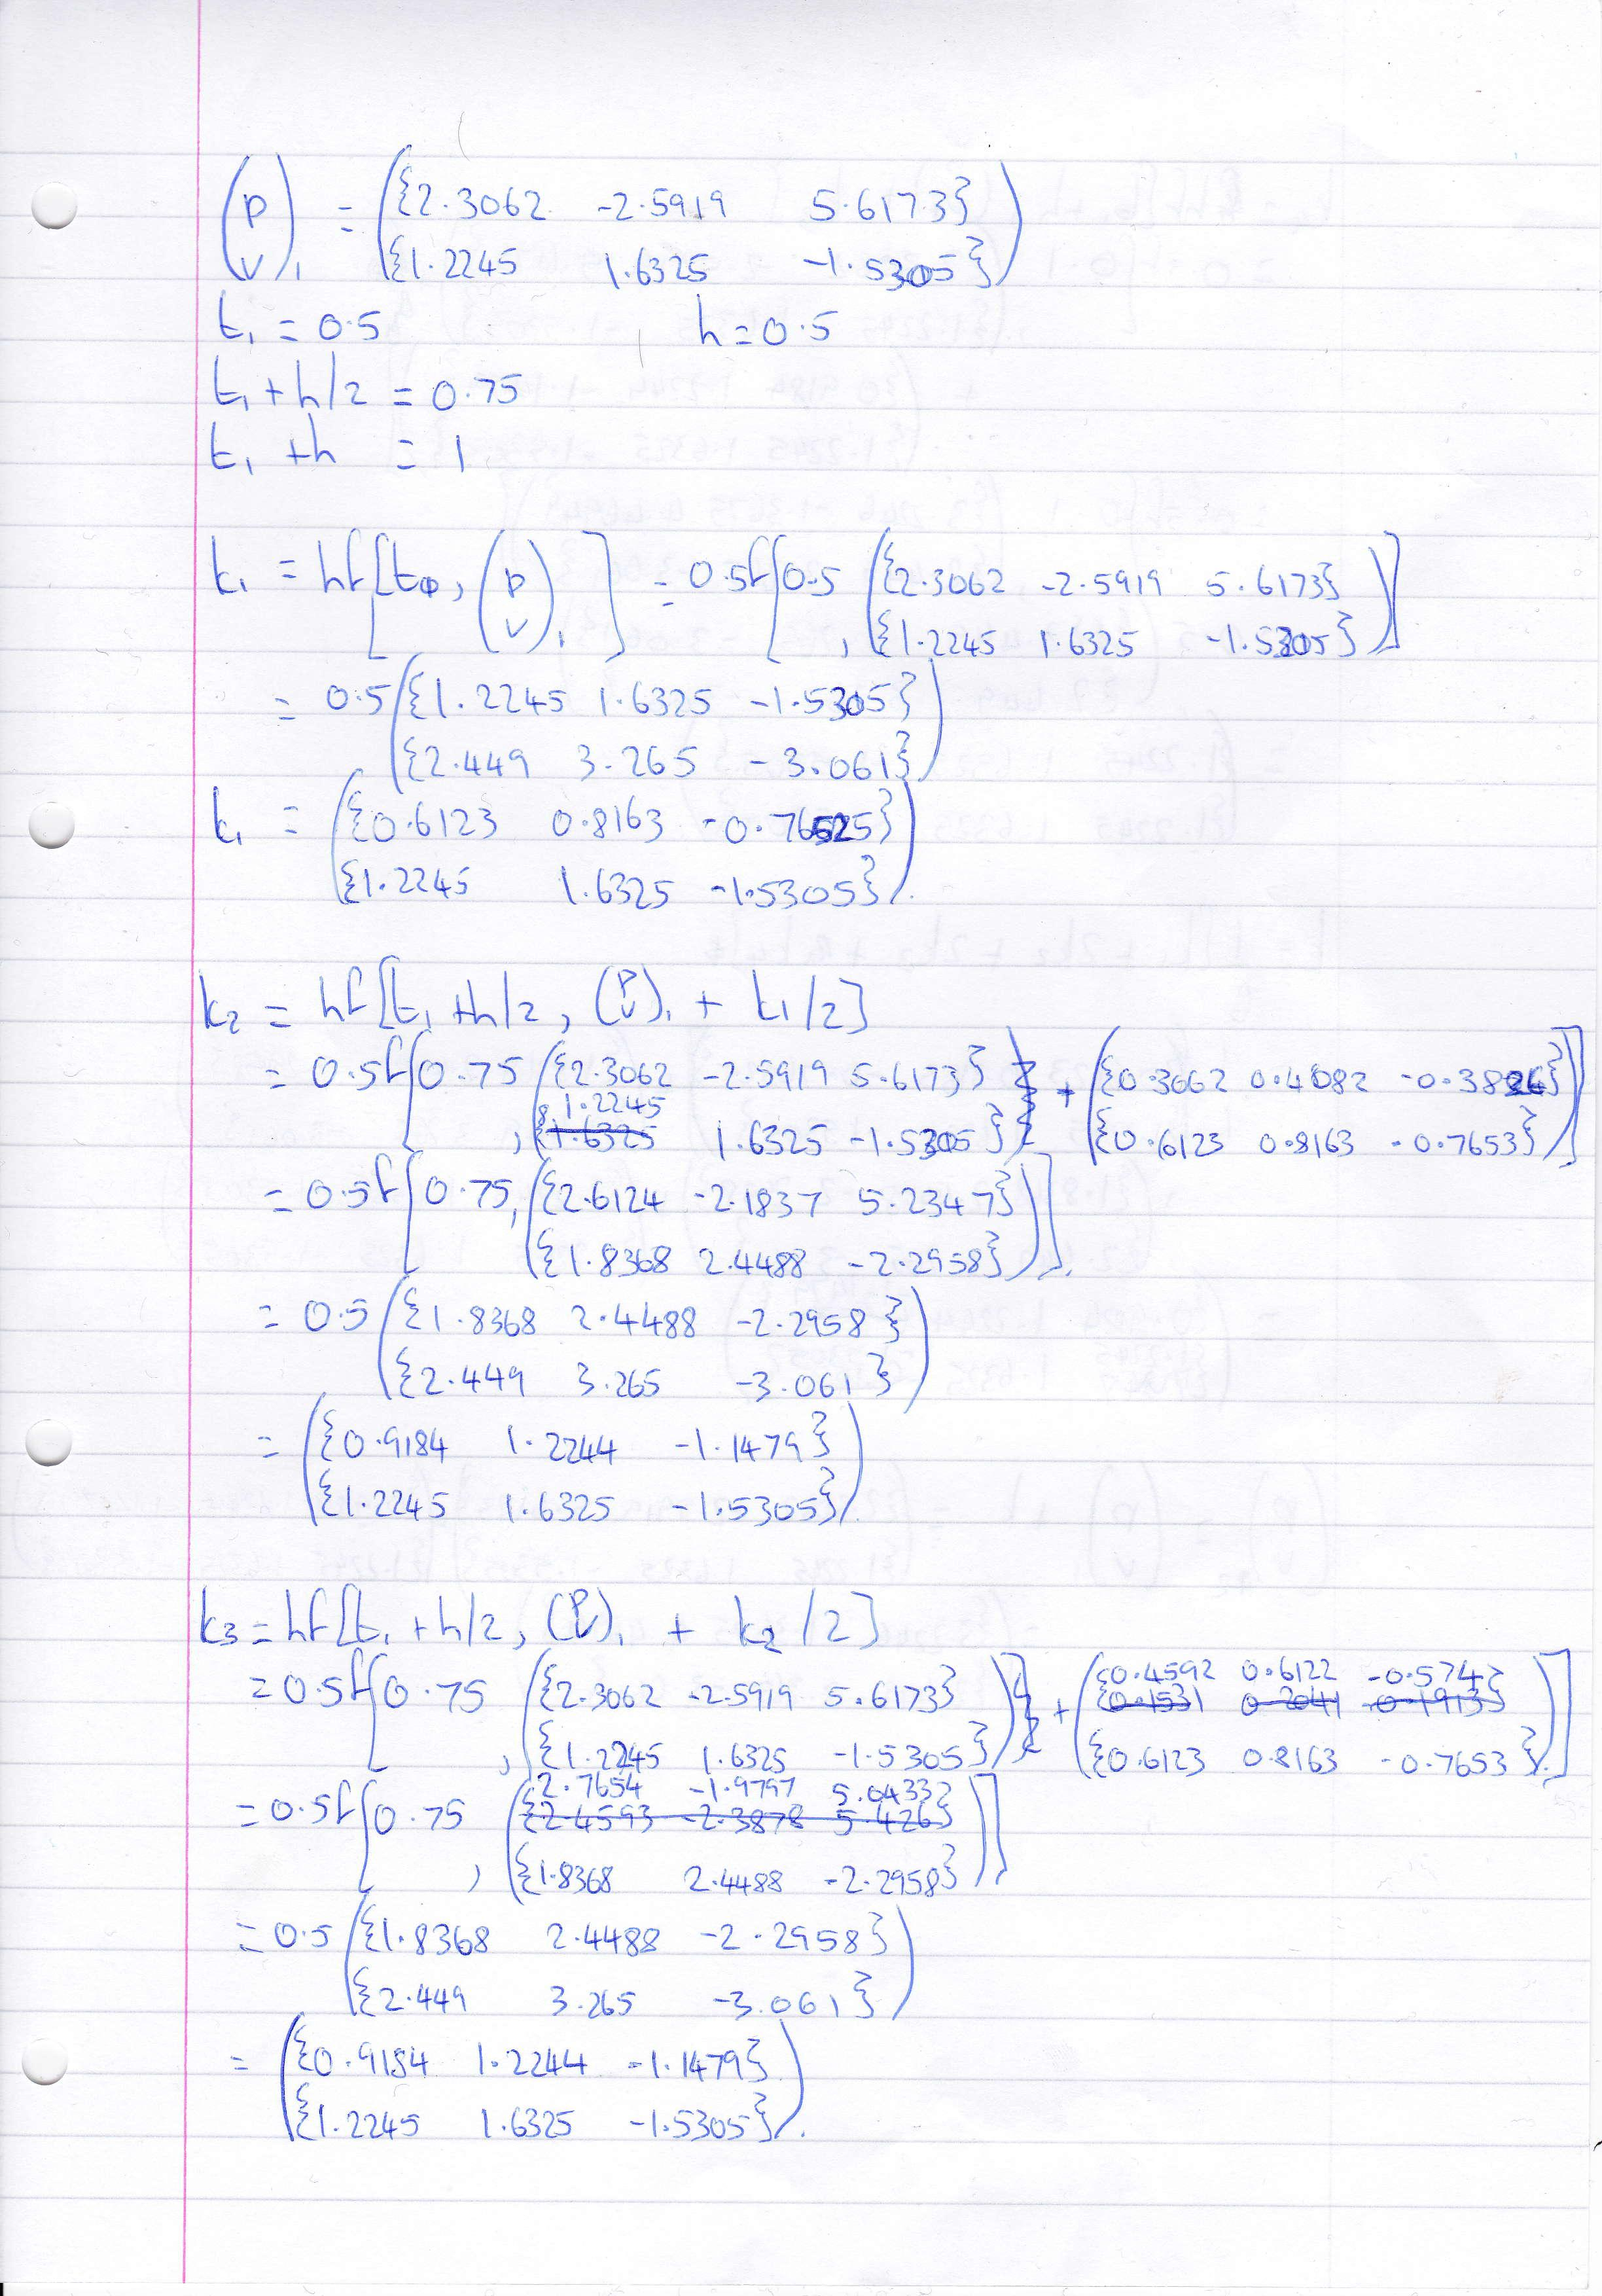 (p v)₁ = ({2.3062 -2.5919 5.6173}
{1.2245 1.6325 -1.5305})
t₁ = 0.5 h = 0.5
t₁ + h/2 = 0.75
t₁ + h = 1
k₁ = hf[t₀, (p v)₁] = 0.5f[0.5 ({2.3062 -2.5919 5.6173}
, {1.2245 1.6325 -1.5305})]
= 0.5({1.2245 1.6325 -1.5305}
{2.449 3.265 -3.061})
k₁ = ({0.6123 0.8163 -0.76525}
{1.2245 1.6325 -1.5305}).
k₂ = hf[t₁ + h/2, (p v)₁ + k₁/2]
= 0.5f[0.75 ({2.3062 -2.5919 5.6173} + ({0.3062 0.4082 -0.3826}
1.2245
, {1.6325 1.6325 -1.5305}) {0.6123 0.8163 -0.7653})]
= 0.5f[0.75, ({2.6124 -2.1837 5.2347}
{1.8368 2.4488 -2.2958})].
= 0.5({1.8368 2.4488 -2.2958}
{2.449 3.265 -3.061})
= ({0.9184 1.2244 -1.1479}
{1.2245 1.6325 -1.5305}).
k₃ = hf[t₁ + h/2, (p v)₁ + k₂/2]
{0.4592 0.6122 -0.574}
= 0.5f[0.75 ({2.3062 -2.5919 5.6173} + ({0.1531 0.2041 -0.1913}
, {1.2245 1.6325 -1.5305}) {0.6123 0.8163 -0.7653})].
{2.7654 -1.9797 5.0433}
= 0.5f[0.75 ({2.4593 -2.3878 5.426}
, {1.8368 2.4488 -2.2958})]
= 0.5({1.8368 2.4488 -2.2958}
{2.449 3.265 -3.061})
= ({0.9184 1.2244 -1.1479}
{1.2245 1.6325 -1.5305}).